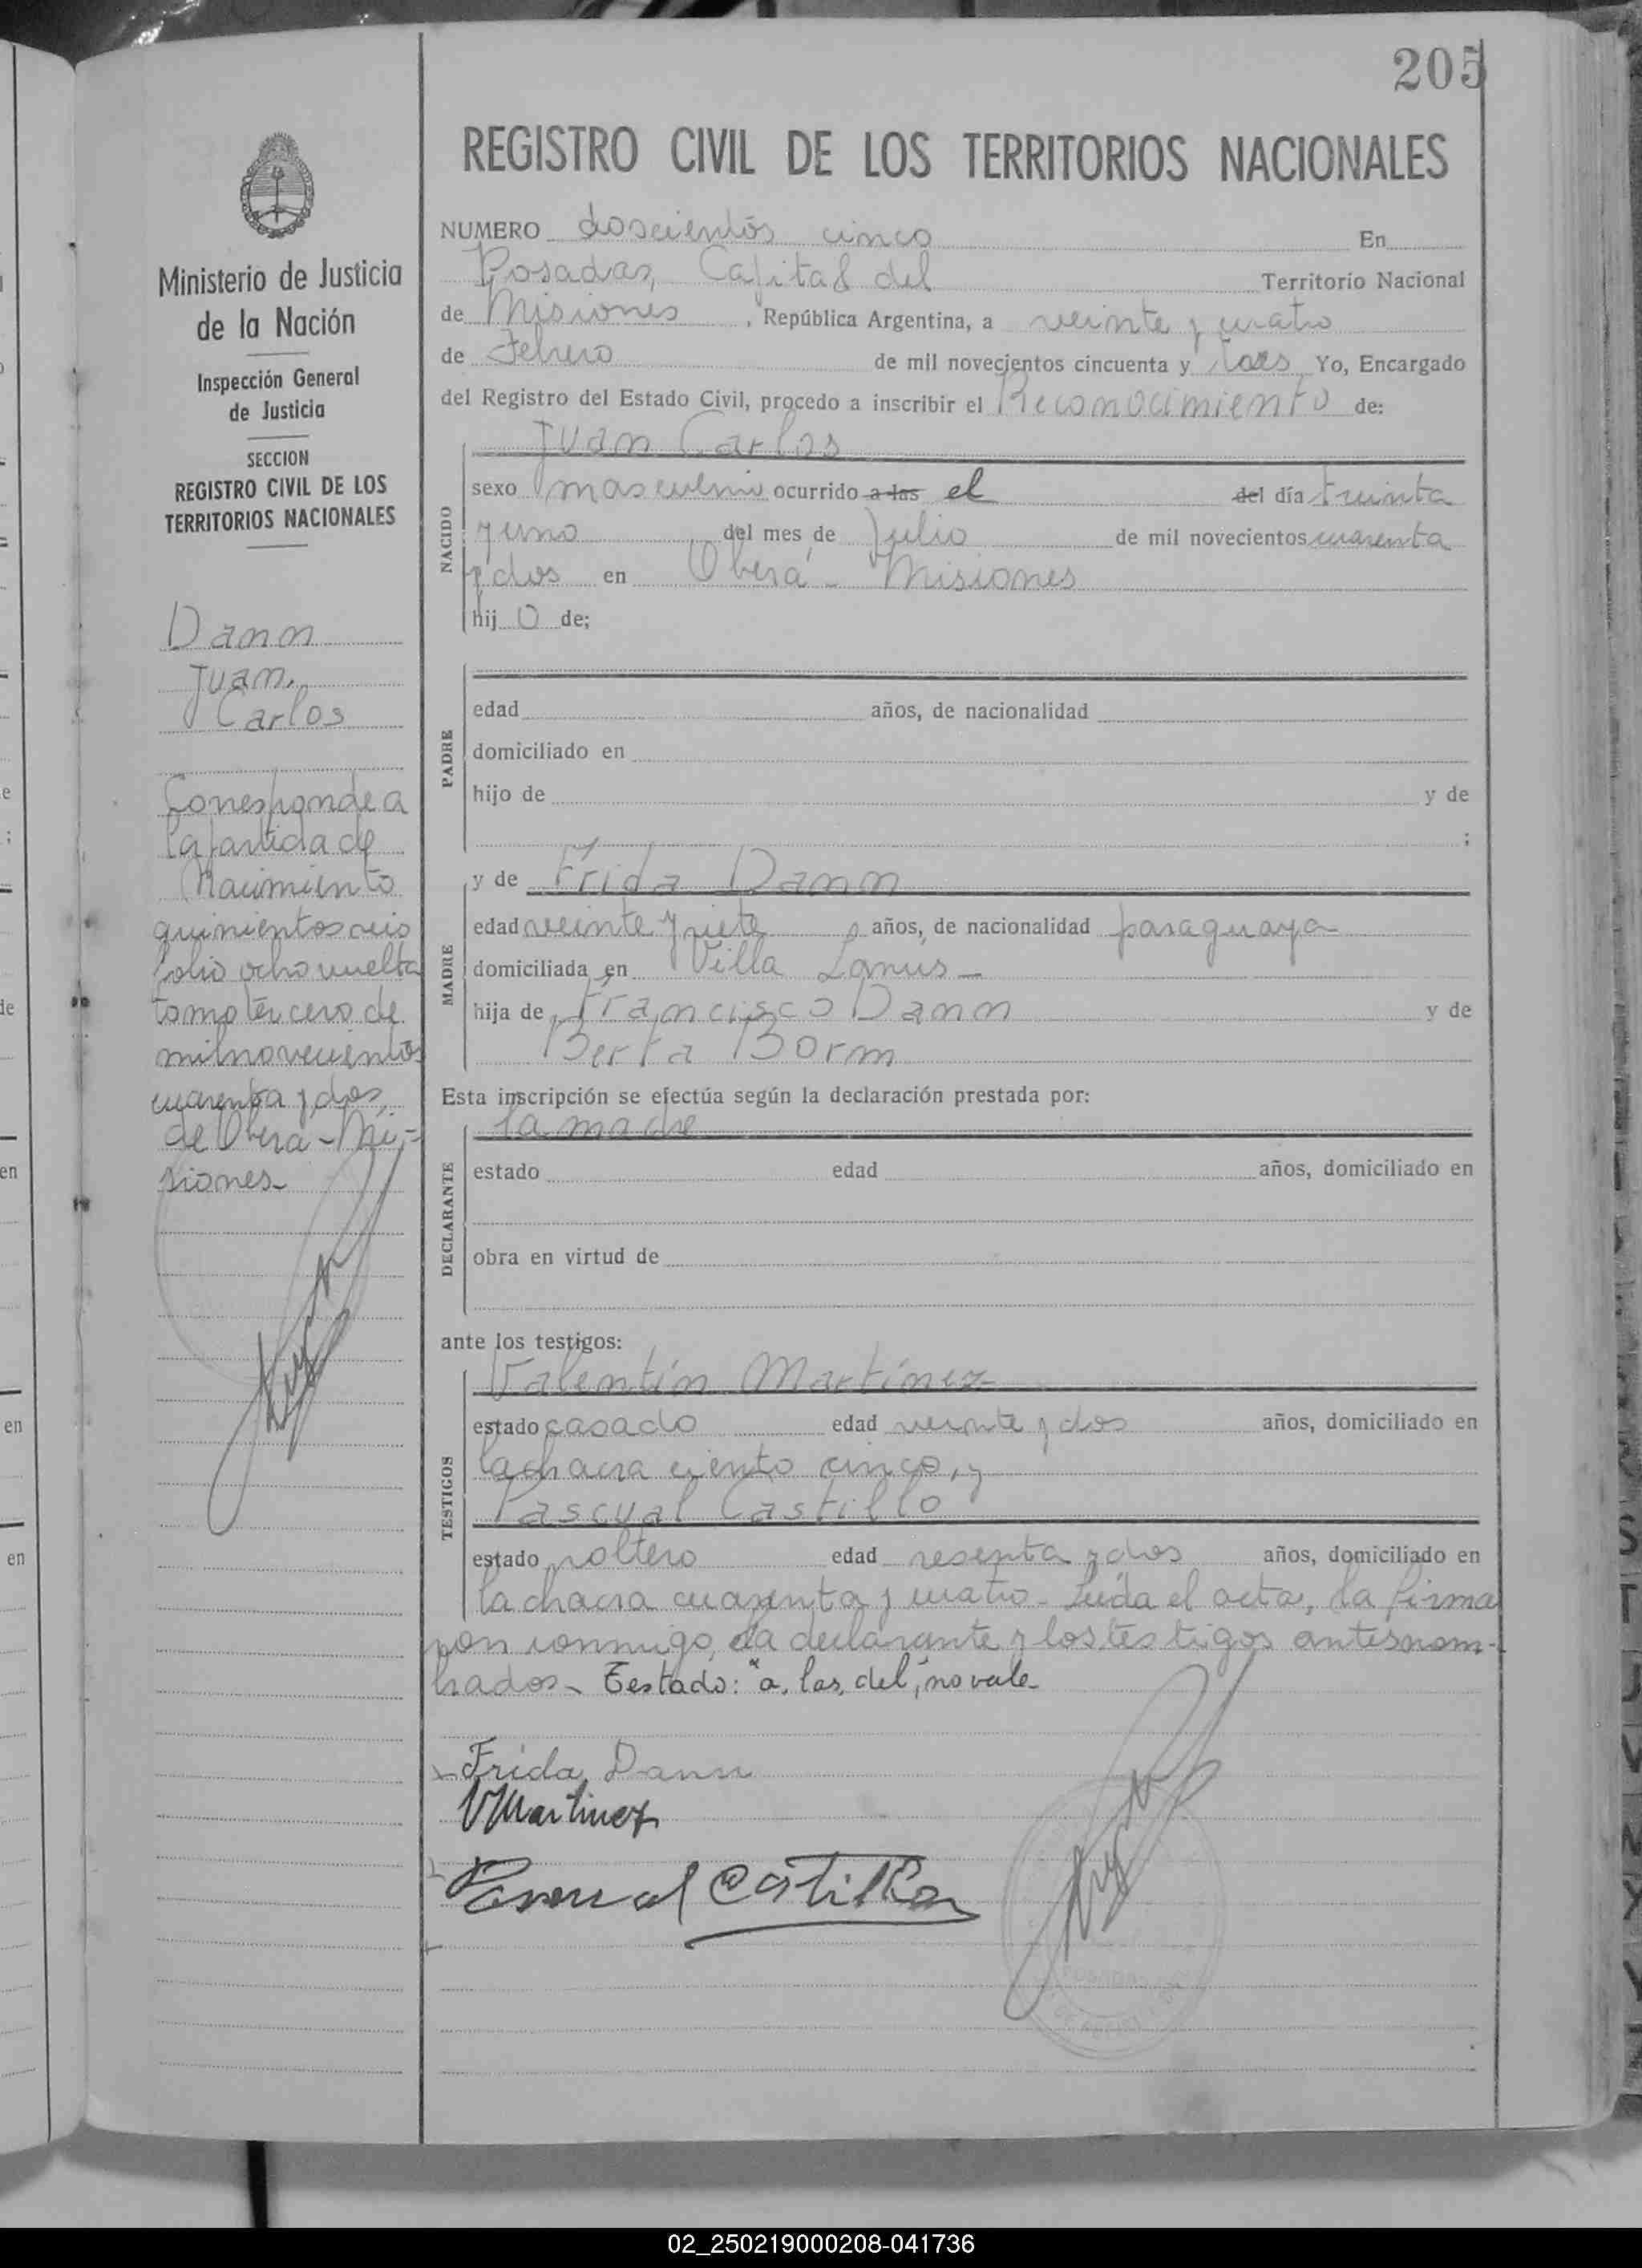 205
REGISTRO CIVIL DE LOS TERRITORIOS NACIONALES
Ministerio de Justicia
de la Nación
Inspección General
de Justicia
SECCION
REGISTRO CIVIL DE LOS
TERRITORIOS NACIONALES
Dann
Juan
Carlos
Corresponde a
la partida de
Nacimiento
quinientos seis
folio ocho vuelta
tomo tercero de
mil novecientos
cuarenta y dos,
de Oberá - Mi-
siones-
NUMERO doscientos cinco En
Posadas, Capital del Territorio Nacional
de Misiones, República Argentina, a veinte y cuatro
de Febrero de mil novecientos cincuenta y tres Yo, Encargado
del Registro del Estado Civil, procedo a inscribir el Reconocimiento de:
NACIDO
Juan Carlos
sexo masculino ocurrido a las el del día treinta
y uno del mes de Julio de mil novecientos cuarenta
y dos en Oberá - Misiones
hij o de;
PADRE
edad años, de nacionalidad
domiciliado en
hijo de y de
;
MADRE
y de Frida Dann
edad veinte y siete años, de nacionalidad paraguaya
domiciliada en Villa Lanus -
hija de Francisco Dann y de
Berta Borm
Esta inscripción se efectúa según la declaración prestada por:
DECLARANTE
la madre
estado edad años, domiciliado en
obra en virtud de
ante los testigos:
TESTIGOS
Valentín Martínez
estado casado edad veinte y dos años, domiciliado en
la chacra ciento cinco, y
Pascual Castillo
estado soltero edad sesenta y dos años, domiciliado en
la chacra cuarenta y cuatro - Leida el acta, la firma
ron conmigo, la declarante y los testigos antes nom-
brados - Testado: "a, las, del", no vale-
Frida Dann
VMartinez
Pascual Castillo
02_250219000208-041736